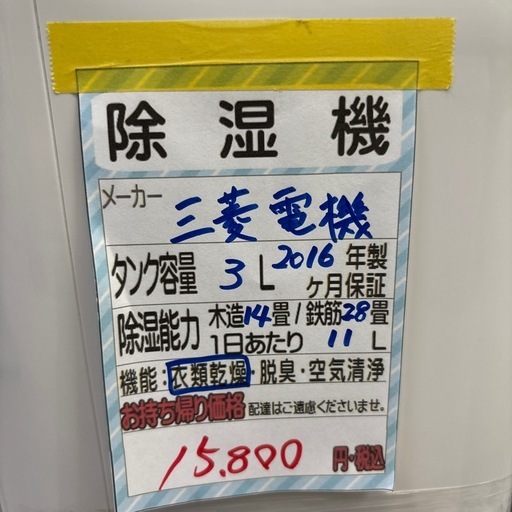 除湿機
メーカー 三菱電機
タンク容量 3L 2016年製
ヶ月保証
除湿能力 木造14畳/鉄筋28畳
1日あたり 11L
機能:衣類乾燥・脱臭・空気清浄
お持ち帰り価格 配達はご遠慮くださいませ。
15,800 円・税込